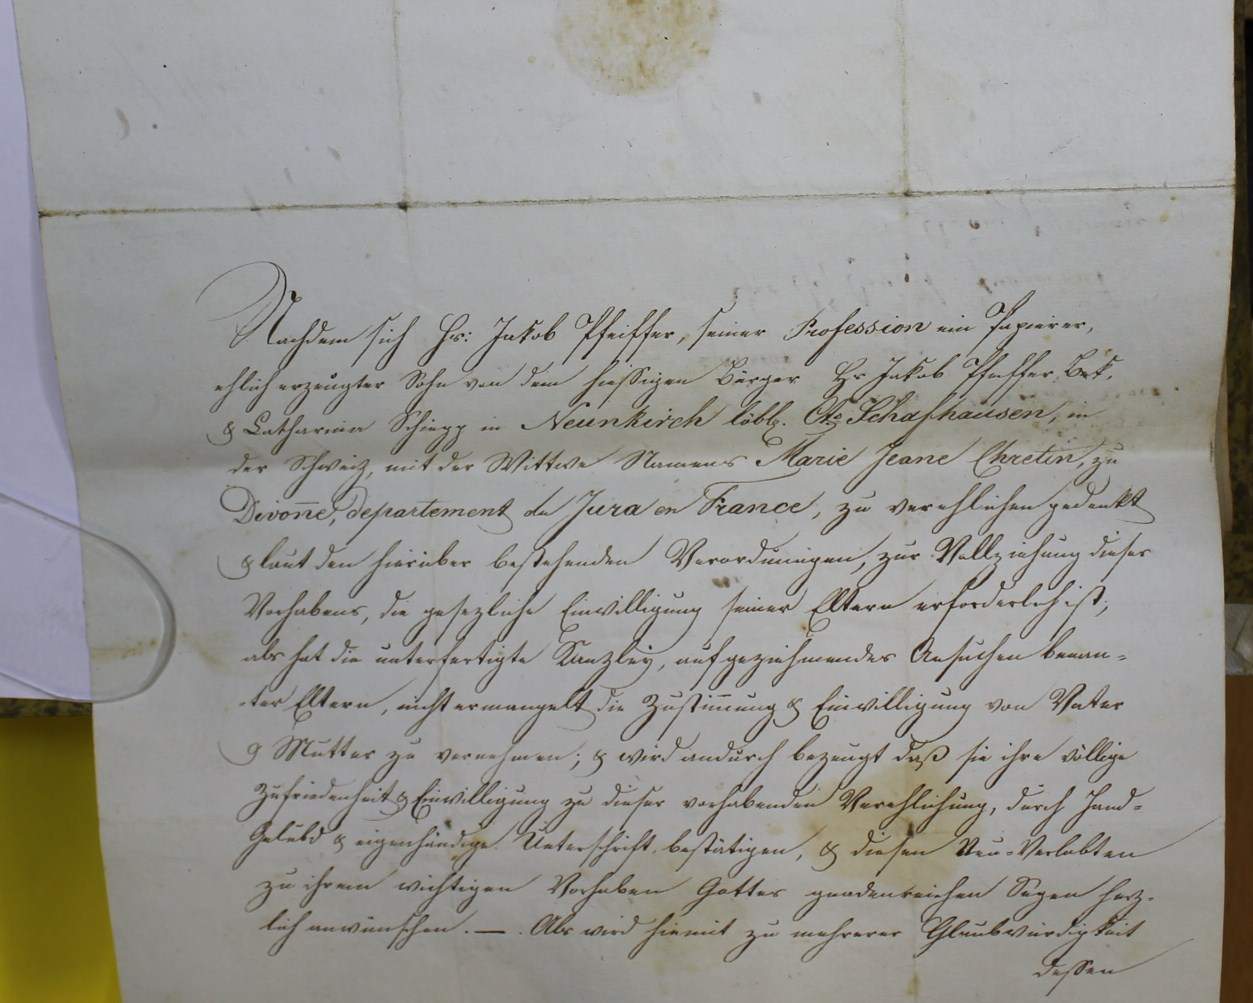 Nachdem sich Hr: Jakob Pfeiffer, seiner Profession ein Papierer,
ehlich erzeugter Sohn von dem hiessigen Bürger Hr Jakob Pfeiffer, Bek.
& Catharina Schiegg in Neunkirch löbl. Cts Schafhausen, in
der Schweiz, mit der Wittwe Namens Marie Jeane Chretin, zu
Divoñe, departement du Jura en France, zu verehlichen gedenkt
& laut den hierüber bestehenden Verordnungen, zur Vollziehung dieses
Vorhabens, die gesezliche Einwilligung seiner Eltern erforderlich ist;
als hat die unterfertigte Kanzley, auf geziehmendes Ansuchen benan-
ter Eltern, nicht ermangelt die Zustim̄ung & Einwilligung von Vater
& Mutter zu vernehmen; & wird andurch bezeugt daß sie ihre völlige
Zufriedenheit & Einwilligung zu dieser vorhabenden Verehlichung, durch Hand-
Gelübd & eigenhändige Unterschrift bestätigen, & diesen Neu-Verlobten
zu ihrem wichtigen Vorhaben Gottes gnadenreichen Segen herz-
lich anwünschen. —. Als wird hiemit zu mehrerer Glaubwürdigkeit
dessen